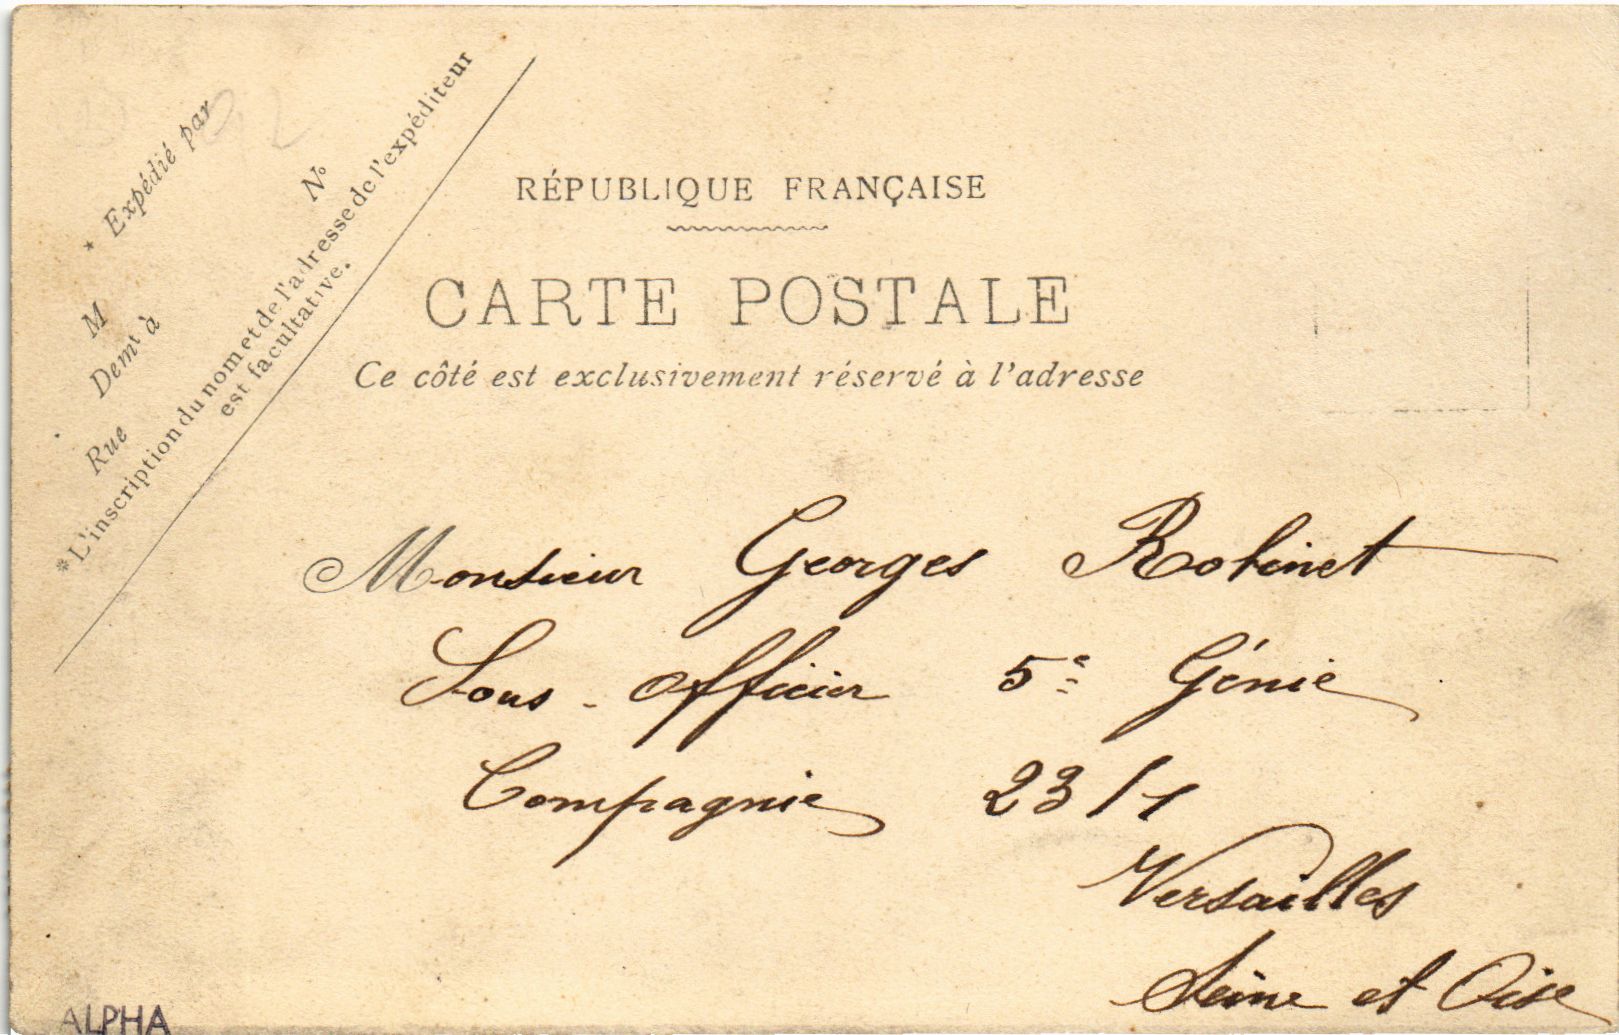 * Expédié par
M
Demt à
Rue
N°
*L'inscription du nom et de l'adresse de l'expéditeur
est facultative.
RÉPUBLIQUE FRANÇAISE
CARTE POSTALE
Ce côté est exclusivement réservé à l'adresse
Monsieur Georges Robinet
Sous-officier 5e Génie
Compagnie 23/1
Versailles
Seine et Oise
ALPHA